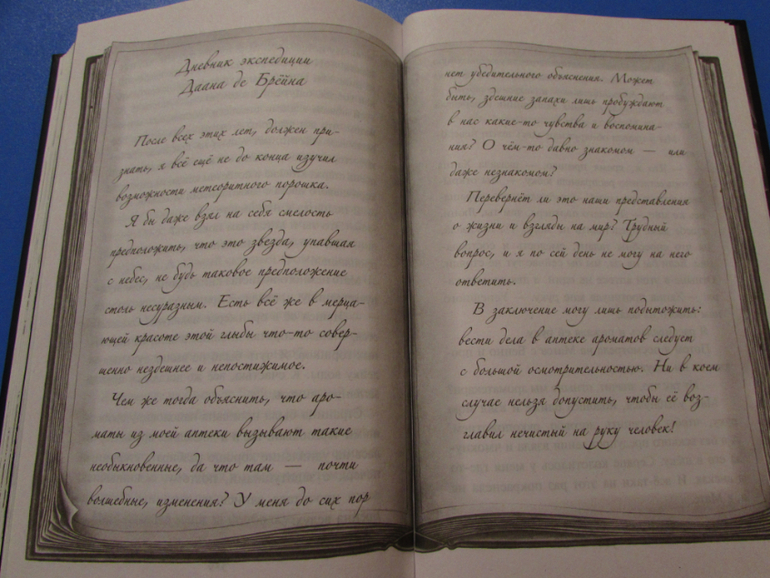 Дневник экспедиции
Даана де Брейна
После всех этих лет, должен при-
знать, я всё ещё не до конца изучил
возможности метеоритного порошка.
Я бы даже взял на себя смелость
предположить, что это звезда, упавшая
с небес, не будь таковое предположение
столь несуразным. Есть всё же в мерца-
ющей красоте этой глыбы что-то совер-
шенно нездешнее и непостижимое.
Чем же тогда объяснить, что аро-
маты из моей аптеки вызывают такие
необыкновенные, да что там — почти
волшебные, изменения? У меня до сих пор
нет убедительного объяснения. Может
быть, здешние запахи лишь пробуждают
в нас какие-то чувства и воспомина-
ния? О чём-то давно знакомом — или
даже незнакомом?
Перевернёт ли это наши представления
о жизни и взгляды на мир? Трудный
вопрос, и я по сей день не могу на него
ответить.
В заключение могу лишь подытожить:
вести дела в аптеке ароматов следует
с большой осмотрительностью. Ни в коем
случае нельзя допустить, чтобы её воз-
главил нечистый на руку человек!